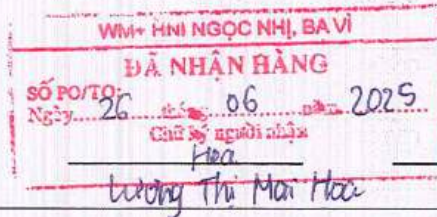 WM+ HNI NGỌC NHỊ, BA VÌ
ĐÃ NHẬN HÀNG
SỐ PO/TO:
Ngày 26 tháng 06 năm 2025
Chữ ký người nhận
Hoa
Lương Thị Mai Hoa